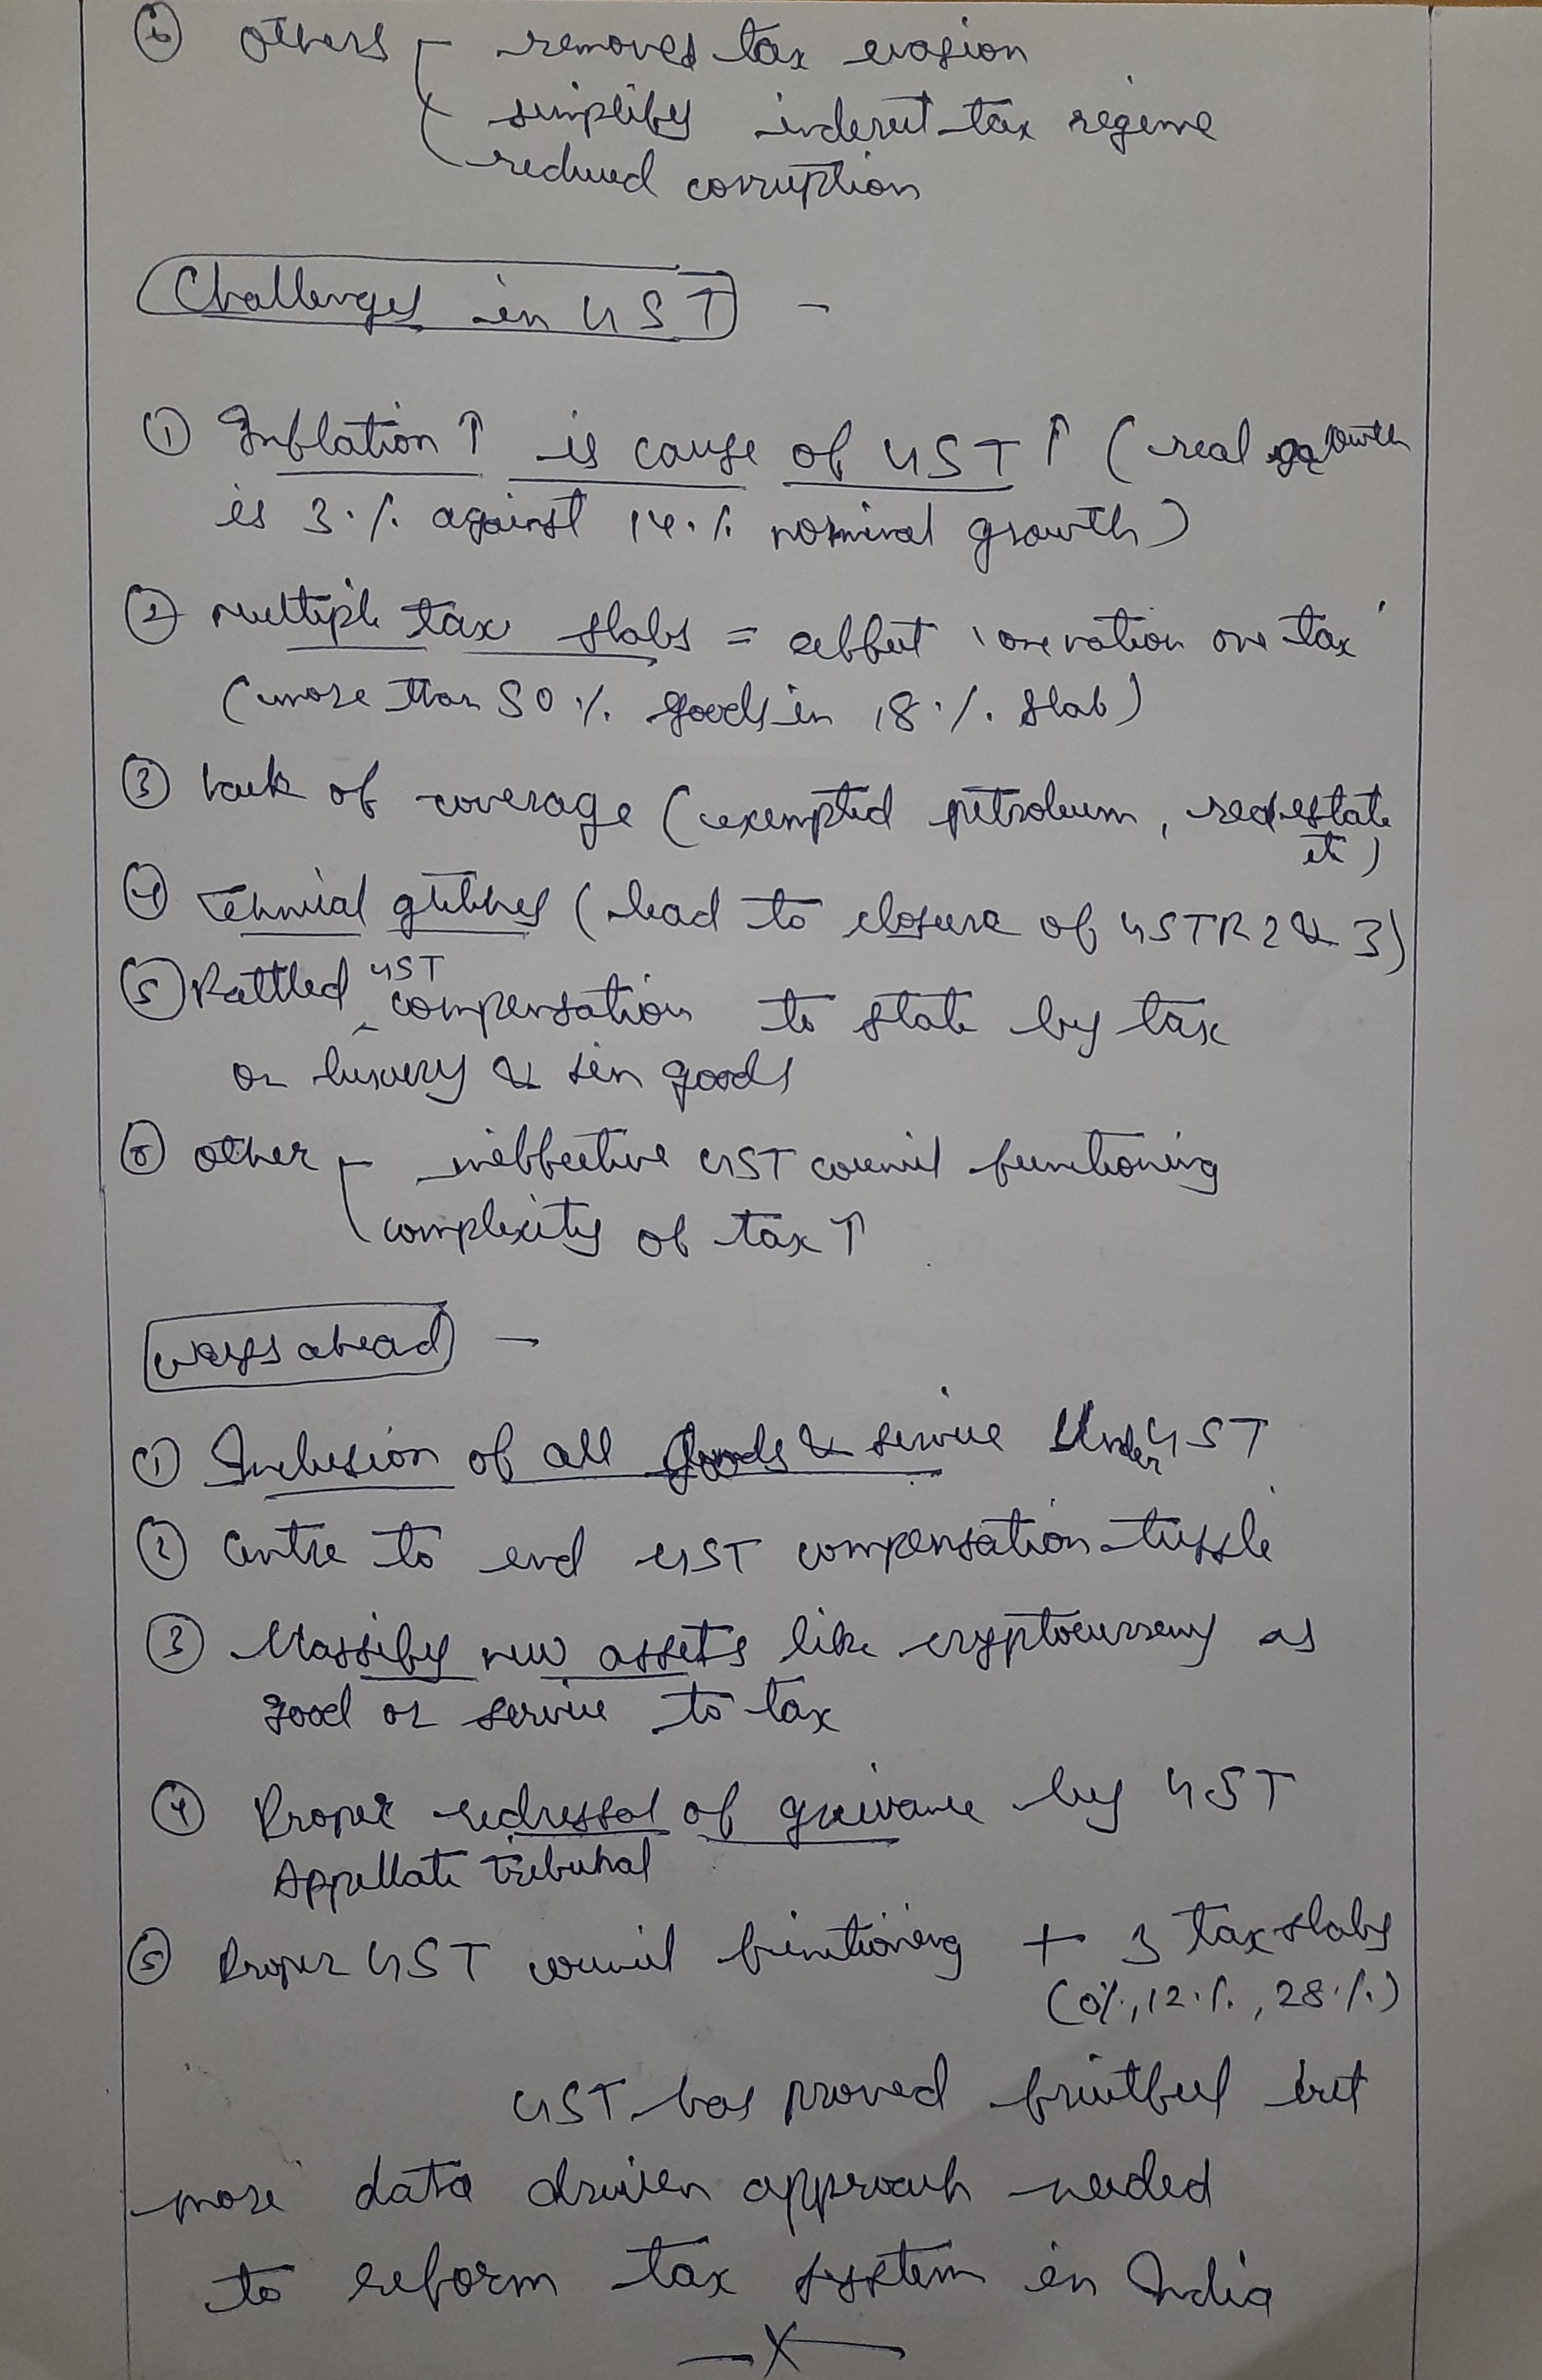 ⑥ Others - removes tax evasion
simplify indirect tax regime
reduced corruption
Challenges in GST -
① Inflation ↑ is cause of GST ↑ (real growth
is 3% against 14% nominal growth)
② Multiple tax slabs = affect 'one nation one tax'
(more than 50% goods in 18% slab)
③ Lack of coverage (exempted petroleum, real estate
etc)
④ Technical glitches (lead to closure of GSTR 2 & 3)
⑤ Rattled GST compensation to state by tax
on luxury & sin goods
⑥ other - ineffective GST council functioning
complexity of tax ↑
Ways ahead -
① Inclusion of all Goods & service Under GST
② Centre to end GST compensation tussle
③ new assets like cryptocurrency as
good or service to tax
④ Proper redressal of grievance by GST
Appellate Tribunal
⑤ Proper GST council functioning + 3 tax slabs
(0%, 12%, 28%)
GST has proved fruitful but
more data driven approach needed
to reform tax system in India
—X—